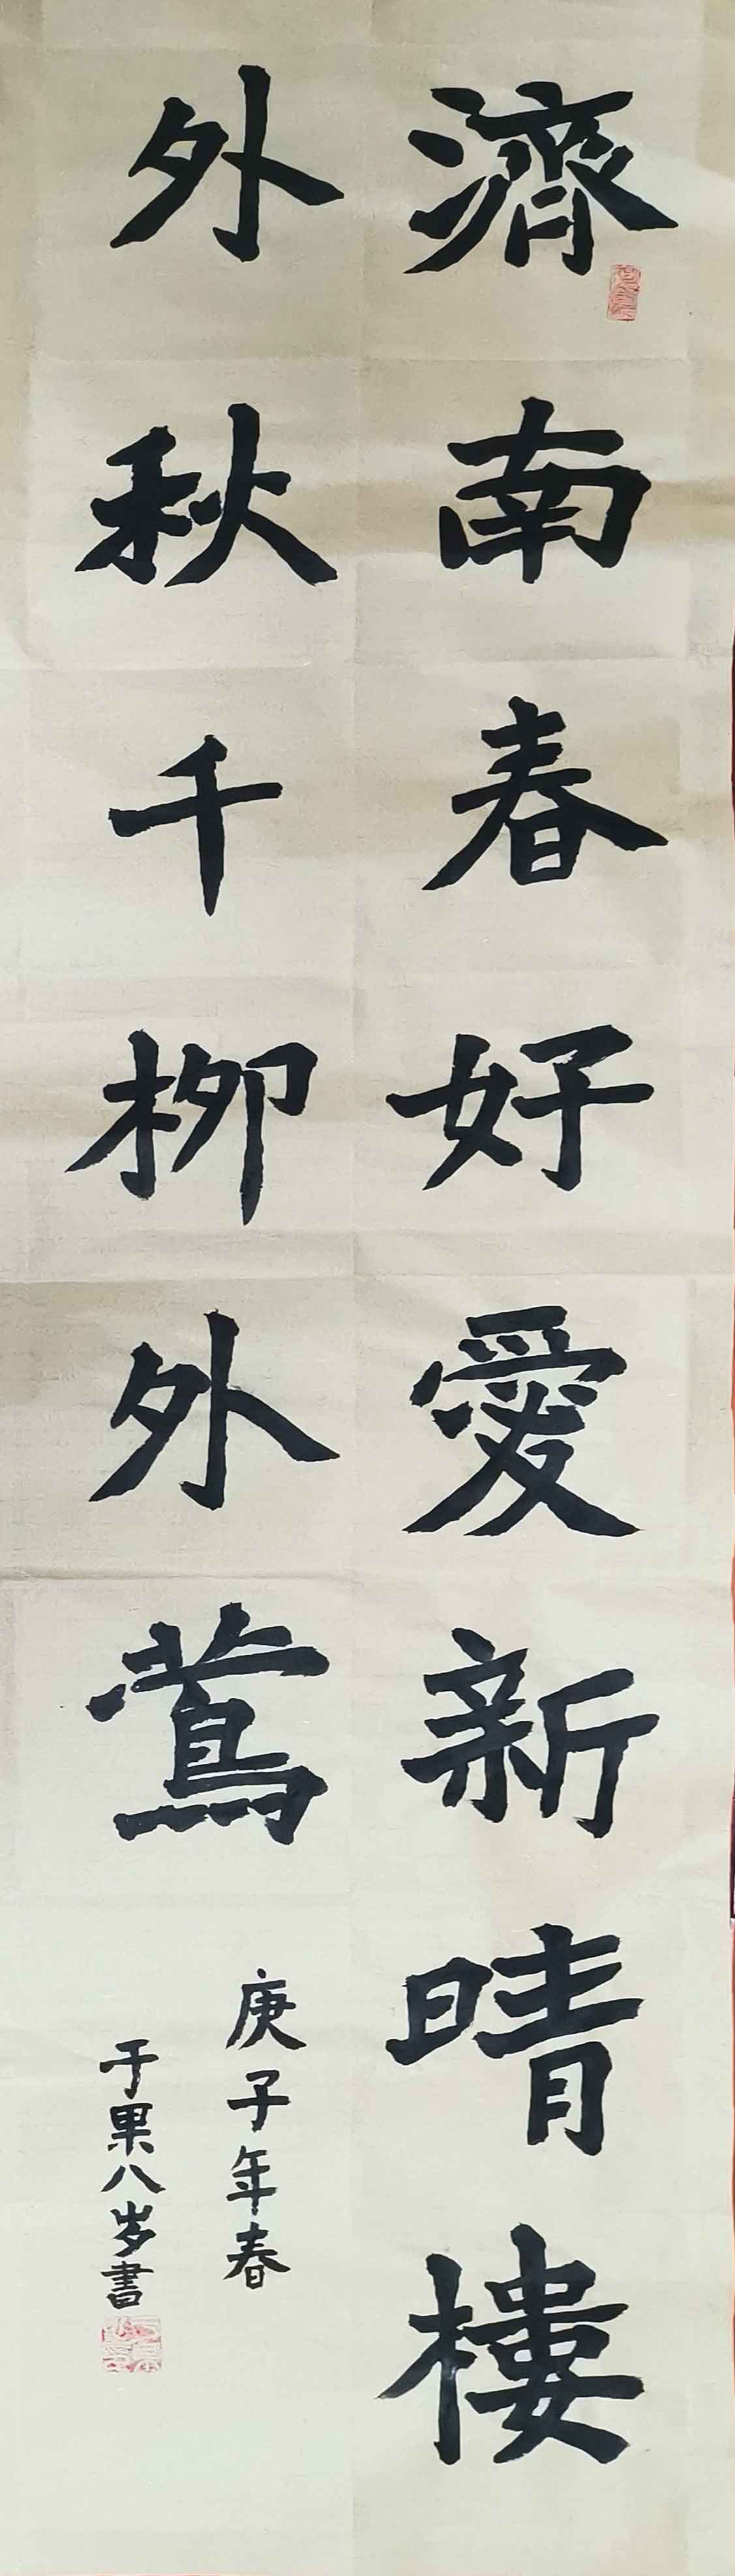 濟南春好愛新晴樓
外秋千柳外鶯
庚子年春
于果八岁書